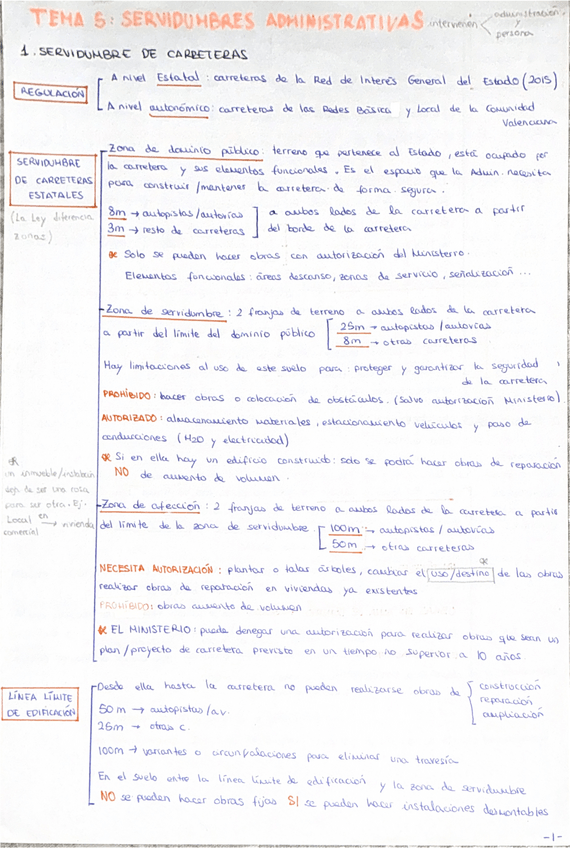 TEMA 5: SERVIDUMBRES ADMINISTRATIVAS intervienen < administración y persona
1. SERVIDUMBRE DE CARRETERAS
REGULACIÓN
A nivel Estatal: carreteras de la Red de Interés General del Estado (2015)
A nivel autonómico: carreteras de las Redes Básica y Local de la Comunidad
Valenciana
SERVIDUMBRE
DE CARRETERAS
ESTATALES
(La Ley diferencia
zonas)
Zona de dominio público: terreno que pertenece al Estado, está ocupado por
la carretera y sus elementos funcionales. Es el espacio que la Admin. necesita
para construir/mantener la carretera de forma segura.
8m → autopistas/autovías
3m → resto de carreteras
a ambos lados de la carretera a partir
del borde de la carretera
* Solo se pueden hacer obras con autorización del Ministerio.
Elementos funcionales: áreas descanso, zonas de servicio, señalización...
Zona de servidumbre: 2 franjas de terreno a ambos lados de la carretera
a partir del límite del dominio público
25m → autopistas/autovías
8m → otras carreteras
Hay limitaciones al uso de este suelo para: proteger y garantizar la seguridad
de la carretera
PROHÍBIDO: hacer obras o colocación de obstáculos. (Salvo autorización Ministerio).
AUTORIZADO: almacenamiento materiales, estacionamiento vehículos y paso de
conducciones (H2O y electricidad)
* Si en ella hay un edificio construido: solo se podrá hacer obras de reparación
NO de aumento de volumen.
*
un inmueble/instalación
deja de ser una cosa
para ser otra. Ej.
Local en → vivienda
comercial
Zona de afección: 2 franjas de terreno a ambos lados de la carretera a partir
del límite de la zona de servidumbre
100m → autopistas/autovías
50m → otras carreteras
NECESITA AUTORIZACIÓN: plantar o talar árboles, cambiar el uso/destino * de las obras
realizar obras de reparación en viviendas ya existentes
PROHIBIDO: obras aumento de volumen
* EL MINISTERIO: puede denegar una autorización para realizar obras que sean un
plan/proyecto de carretera previsto en un tiempo no superior a 10 años.
LÍNEA LÍMITE
DE EDIFICACIÓN
Desde ella hasta la carretera no pueden realizarse obras de
construcción
reparación
ampliación
50m → autopistas/a.v.
25m → otras c.
100m → variantes o circunvalaciones para eliminar una travesía
En el suelo entre la línea límite de edificación y la zona de servidumbre
NO se pueden hacer obras fijas SI se pueden hacer instalaciones desmontables
-1-